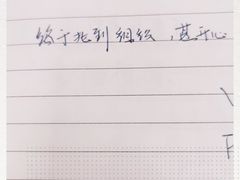 终于找到组织，甚开心